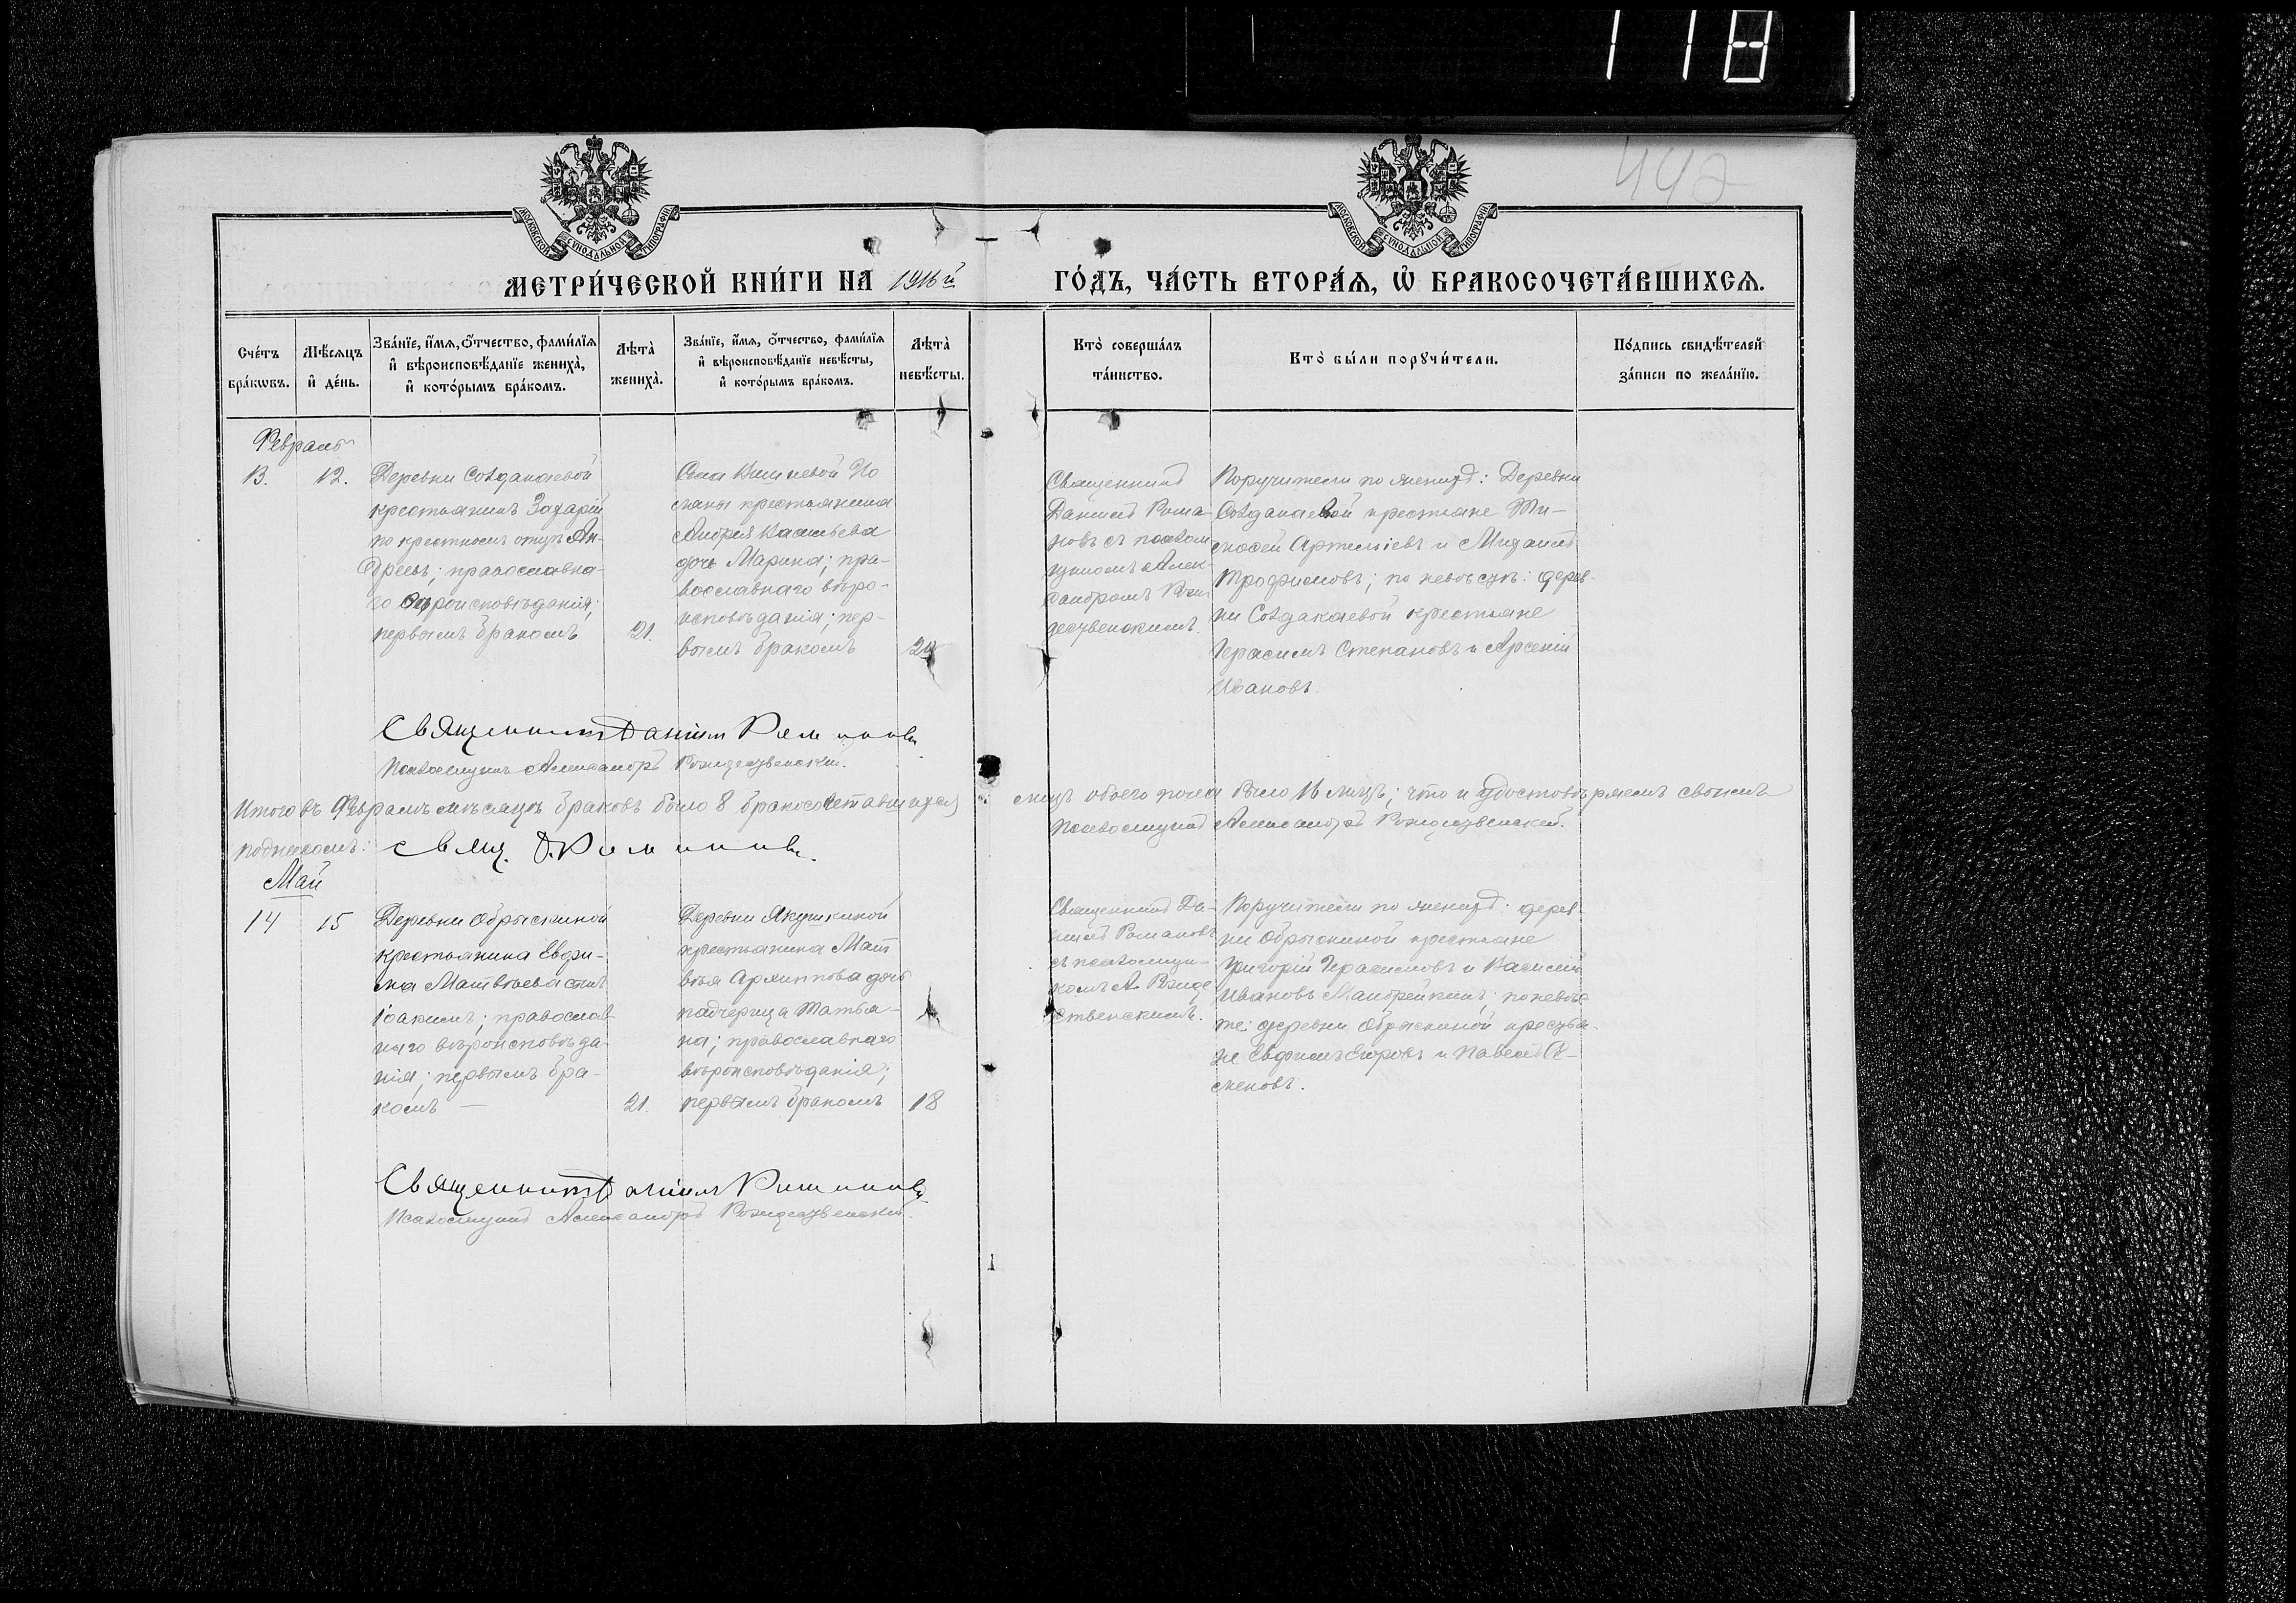 118
442
МОСКОВСКОЙ СѴНОДАЛЬНОЙ ТИПОГРАФІИ
МОСКОВСКОЙ СѴНОДАЛЬНОЙ ТИПОГРАФІИ
МЕТРИ́ЧЕСКОЙ КНИ́ГИ НА 1916й ГО́ДЪ, ЧА́СТЬ ВТОРА́Я, Ѽ БРАКОСОЧЕТА́ВШИХСЯ.
Сче́тъ
бра́кѡвъ.
Мѣ́сяцъ
и҆ де́нь.
Зва́нїе, и҆́мя, ѻ҆́тчество, фами́лїя
и҆ вѣроисповѣ́данїе жениха̀,
и҆ кото́рымъ бра́комъ.
Лѣта̀
жениха̀.
Зва́нїе, и҆́мя, ѻ҆́тчество, фами́лїя
и҆ вѣроисповѣ́данїе невѣ́сты,
и҆ кото́рымъ бра́комъ.
Лѣта̀
невѣ́сты.
Кто̀ соверша́лъ
та́инство.
Кто̀ бы́ли порꙋчи́тели.
По́дпись свидѣ́телей
за́писи по жела́нїю.
Февраль
13. 12.
Деревни Создакаевой
крестьянинъ Захарій
по крестномъ отцѣ Ан-
дреевъ; православна-
го вѣроисповѣданія;
первымъ бракомъ 21.
Села Вишневой По
ляны крестьянина
Андрея Васильева
дочь Марина; пра-
вославнаго вѣро-
исповѣданія; пер-
вымъ бракомъ
Священникъ
Даніилъ Рома-
новъ съ псалом
щикомъ Алек-
сандромъ Рож
дественскимъ.
Поручители по женихѣ: Деревни
Создакаевой крестьяне Ти-
моѳей Артемьевъ и Михаилъ
Трофимовъ; по невѣстѣ: дерев-
ни Создакаевой крестьяне
Герасимъ Степановъ и Арсеній
Ивановъ.
Священникъ Даніилъ Романовъ
Псаломщикъ Александръ Рождественскій.
Итого въ Февралѣ мѣсяцѣ браковъ было 8 бракосочетавшихся лицъ обоего пола было 16 лицъ; что и удостовѣряемъ своимъ
подписомъ: Свящ. Д. Романовъ. Псаломщикъ Александръ Рождественскій.
Май
14 15
Деревни Обрыскиной
крестьянина Евфи-
ма Матвѣева сынъ
Іоакимъ; православ-
наго вѣроисповѣда-
нія; первымъ бра-
комъ — 21.
Деревни Якушкиной
крестьянина Мат
вѣя Архиппова дочь
падчерица Татья-
на; православнаго
вѣроисповѣданія;
первымъ бракомъ 18
Священникъ Да-
ніилъ Романовъ
съ псаломщи-
комъ А. Рожде
ственскимъ.
Поручители по женихѣ: дерев-
ни Обрыскиной крестьяне
Григорій Герасимовъ и Василій
Ивановъ Мандрейкинъ; по невѣс-
тѣ: деревни Обрыскиной крестья-
не Евфимъ Егоровъ и Павелъ Се-
меновъ.
Священникъ Даніилъ Романовъ
Псаломщикъ Александръ Рождественскій.